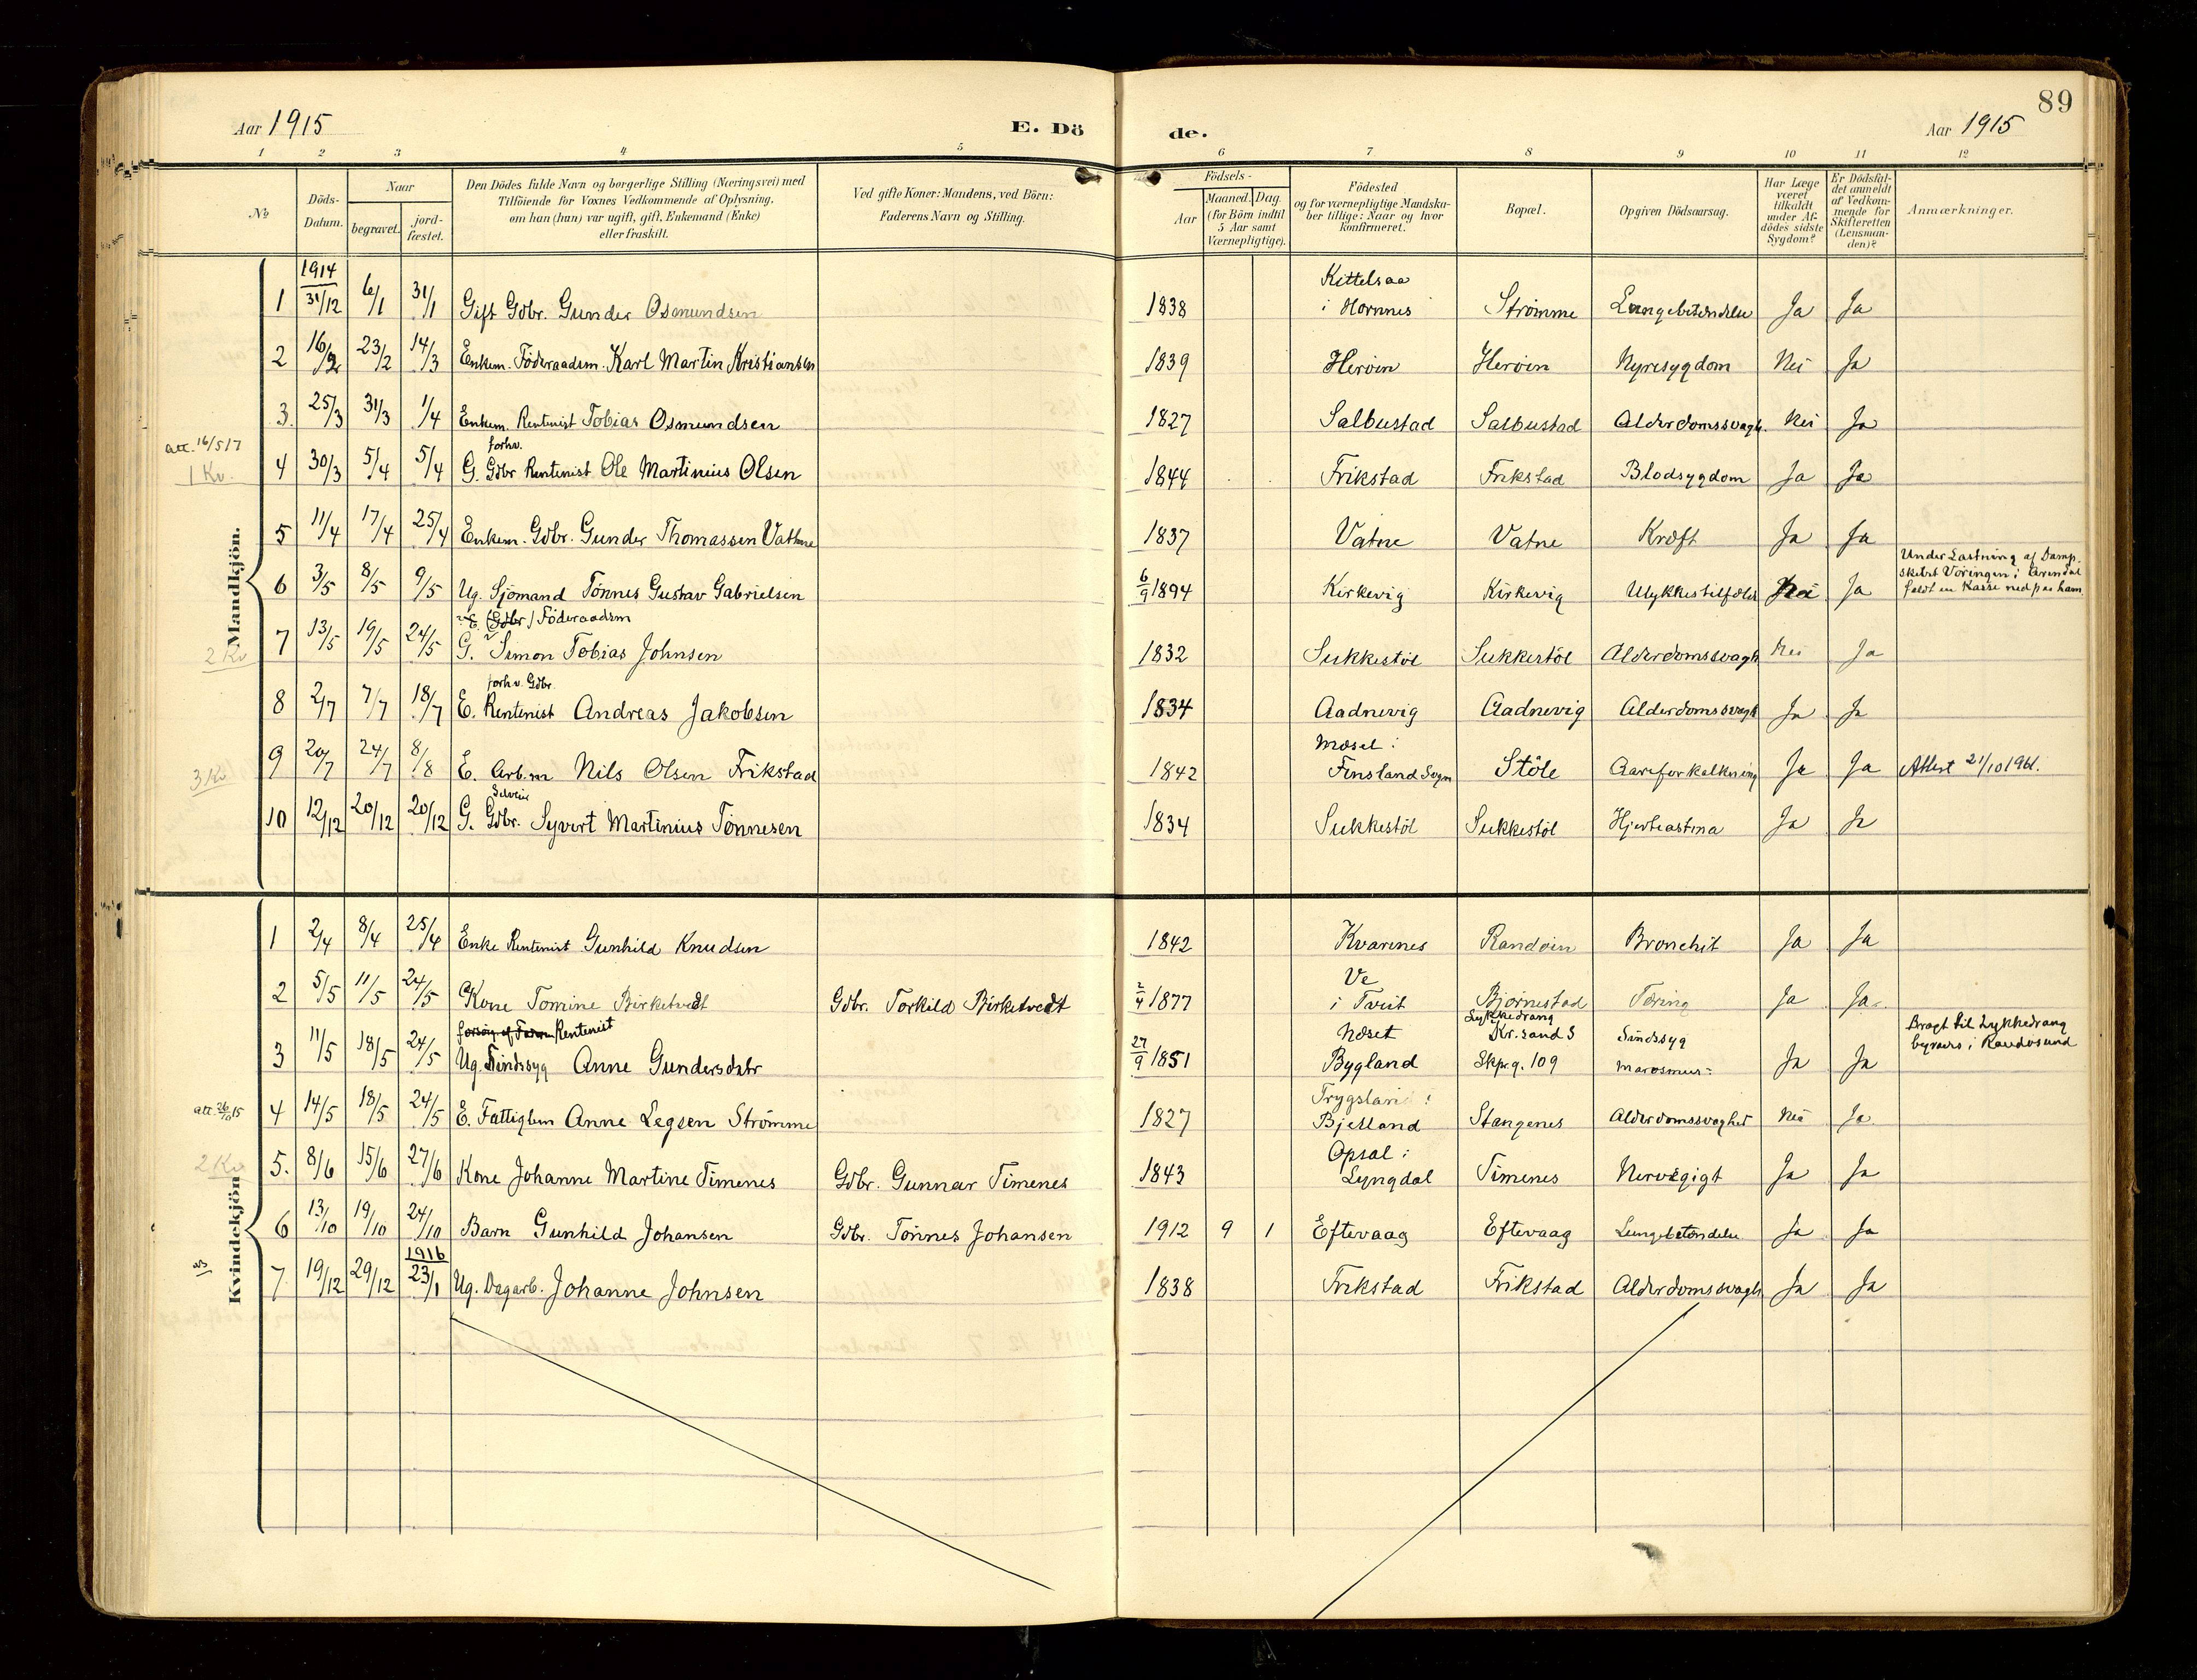 89
Aar 1915
E. Dö
de.
Aar 1915
1 2 3 4 5 6 7 8 9 10 11 12
No
Döds-
Datum.
Naar
begravet.
jord-
fæstet.
Den Dödes fulde Navn og borgerlige Stilling (Næringsvei) med
Tilföiende for Voxnes Vedkommende af Oplysning,
om han (hun) var ugift, gift, Enkemand (Enke)
eller fraskilt.
Ved gifte Koner: Mandens, ved Börn:
Faderens Navn og Stilling.
Födsels-
Aar
Maaned. Dag
(for Börn indtil
5 Aar samt
Værnepligtige).
Födested
og for værnepligtige Mandska-
ber tillige: Naar og hvor
konfirmeret.
Bopæl.
Opgiven Dödsaarsag.
Har Læge
været
tilkaldt
under Af-
dödes sidste
Sygdom?
Er Dödsfal-
det anmeldt
af Vedkom-
mende for
Skifteretten
(Lensman-
den)?
Anmærkninger.
Mandkjön.
1914
Kittelsaa
1 31/12 6/1 31/1 Gift Gdbr. Gunder Osmundsen 1838 i Hornnes Strömme Lungebetendelse Ja Ja
2 16/2 23/2 14/3 Enkem. Föderaadsm. Karl Martin Kristiansen 1839 Heröin Heröin Nyresygdom Nei Ja
3. 25/3 31/3 1/4 Enkem. Rentenist Tobias Osmundsen 1827 Salbustad Salbustad Alderdomssvagh. Nei Ja
att. 16/5 17
forhv.
1 Kv. 4 30/3 5/4 5/4 G. Gdbr Rentenist Ole Martinius Olsen 1844 Frikstad Frikstad Blodsygdom Ja Ja
5 11/4 17/4 25/4 Enkem. Gdbr. Gunder Thomassen Vatne 1837 Vatne Vatne Kræft Ja Ja
Under Lastning af Damp-
skibet Vöringen i Arendal
6 3/5 8/5 9/5 Ug. Sjömand Tönnes Gustav Gabrielsen 6/9 1894 Kirkevig Kirkevig Ulykkestilfælde Nei Ja faldt en Kasse ned paa ham.
(Gdbr) Föderaadsm
2 Kv 7 13/5 19/5 24/5 G. Simon Tobias Johnsen 1832 Sukkestöl Sukkestöl Alderdomssvagh Nei Ja
forhv. Gdbr.
8 2/7 7/7 18/7 E. Rentenist Andreas Jakobsen 1834 Aadnevig Aadnevig Alderdomssvagh Ja Ja
Mosel i
3 Kv 9 20/7 24/7 8/8 E. Arb.m Nils Olsen Frikstad 1842 Finsland Sogn Stöle Aareforkalkning Ja Ja Attest 21/10 1961.
Selveier
10 12/12 20/12 20/12 G. Gdbr. Syvert Martinius Tönnesen 1834 Sukkestöl Sukkestöl Hjerteastma Ja Ja
Kvindekjön.
1 2/4 8/4 25/4 Enke Rentenist Gunhild Knudsen 1842 Kvarenes Randöin Bronchit Ja Ja
Ve
2 5/5 11/5 24/5 Kone Tomine Birketvedt Gdbr. Torkild Birketvedt 2/4 1877 i Tveit Björnestad Tæring Ja Ja
Rentenist Næset Lykkedrang Kr.sand S Sindssyg
3 11/5 18/5 24/5 Ug. Sindssyg Anne Gundersdatr 27/9 1851 Bygland Skpr.g. 109 Marasmus Ja Ja
Bragt til Lykkedrang
byraas i Randösund
Trygsland i
att. 26/10 15 4 14/5 18/5 24/5 E. Fattiglem Anne Legsen Strömme 1827 Bjelland Stangenes Alderdomssvaghet Nei Ja
Opsal i
2 Kv. 5. 8/6 15/6 27/6 Kone Johanne Martine Timenes Gdbr. Gunnar Timenes 1843 Lyngdal Timenes Nervegigt Ja Ja
6 13/10 19/10 24/10 Barn Gunhild Johansen Gdbr. Tönnes Johansen 1912 9 1 Eftevaag Eftevaag Lungebetöndelse Ja Ja
1916
7 19/12 29/12 23/1 Ug. Dagarb. Johanne Johnsen 1838 Frikstad Frikstad Alderdomssvagh Ja Ja